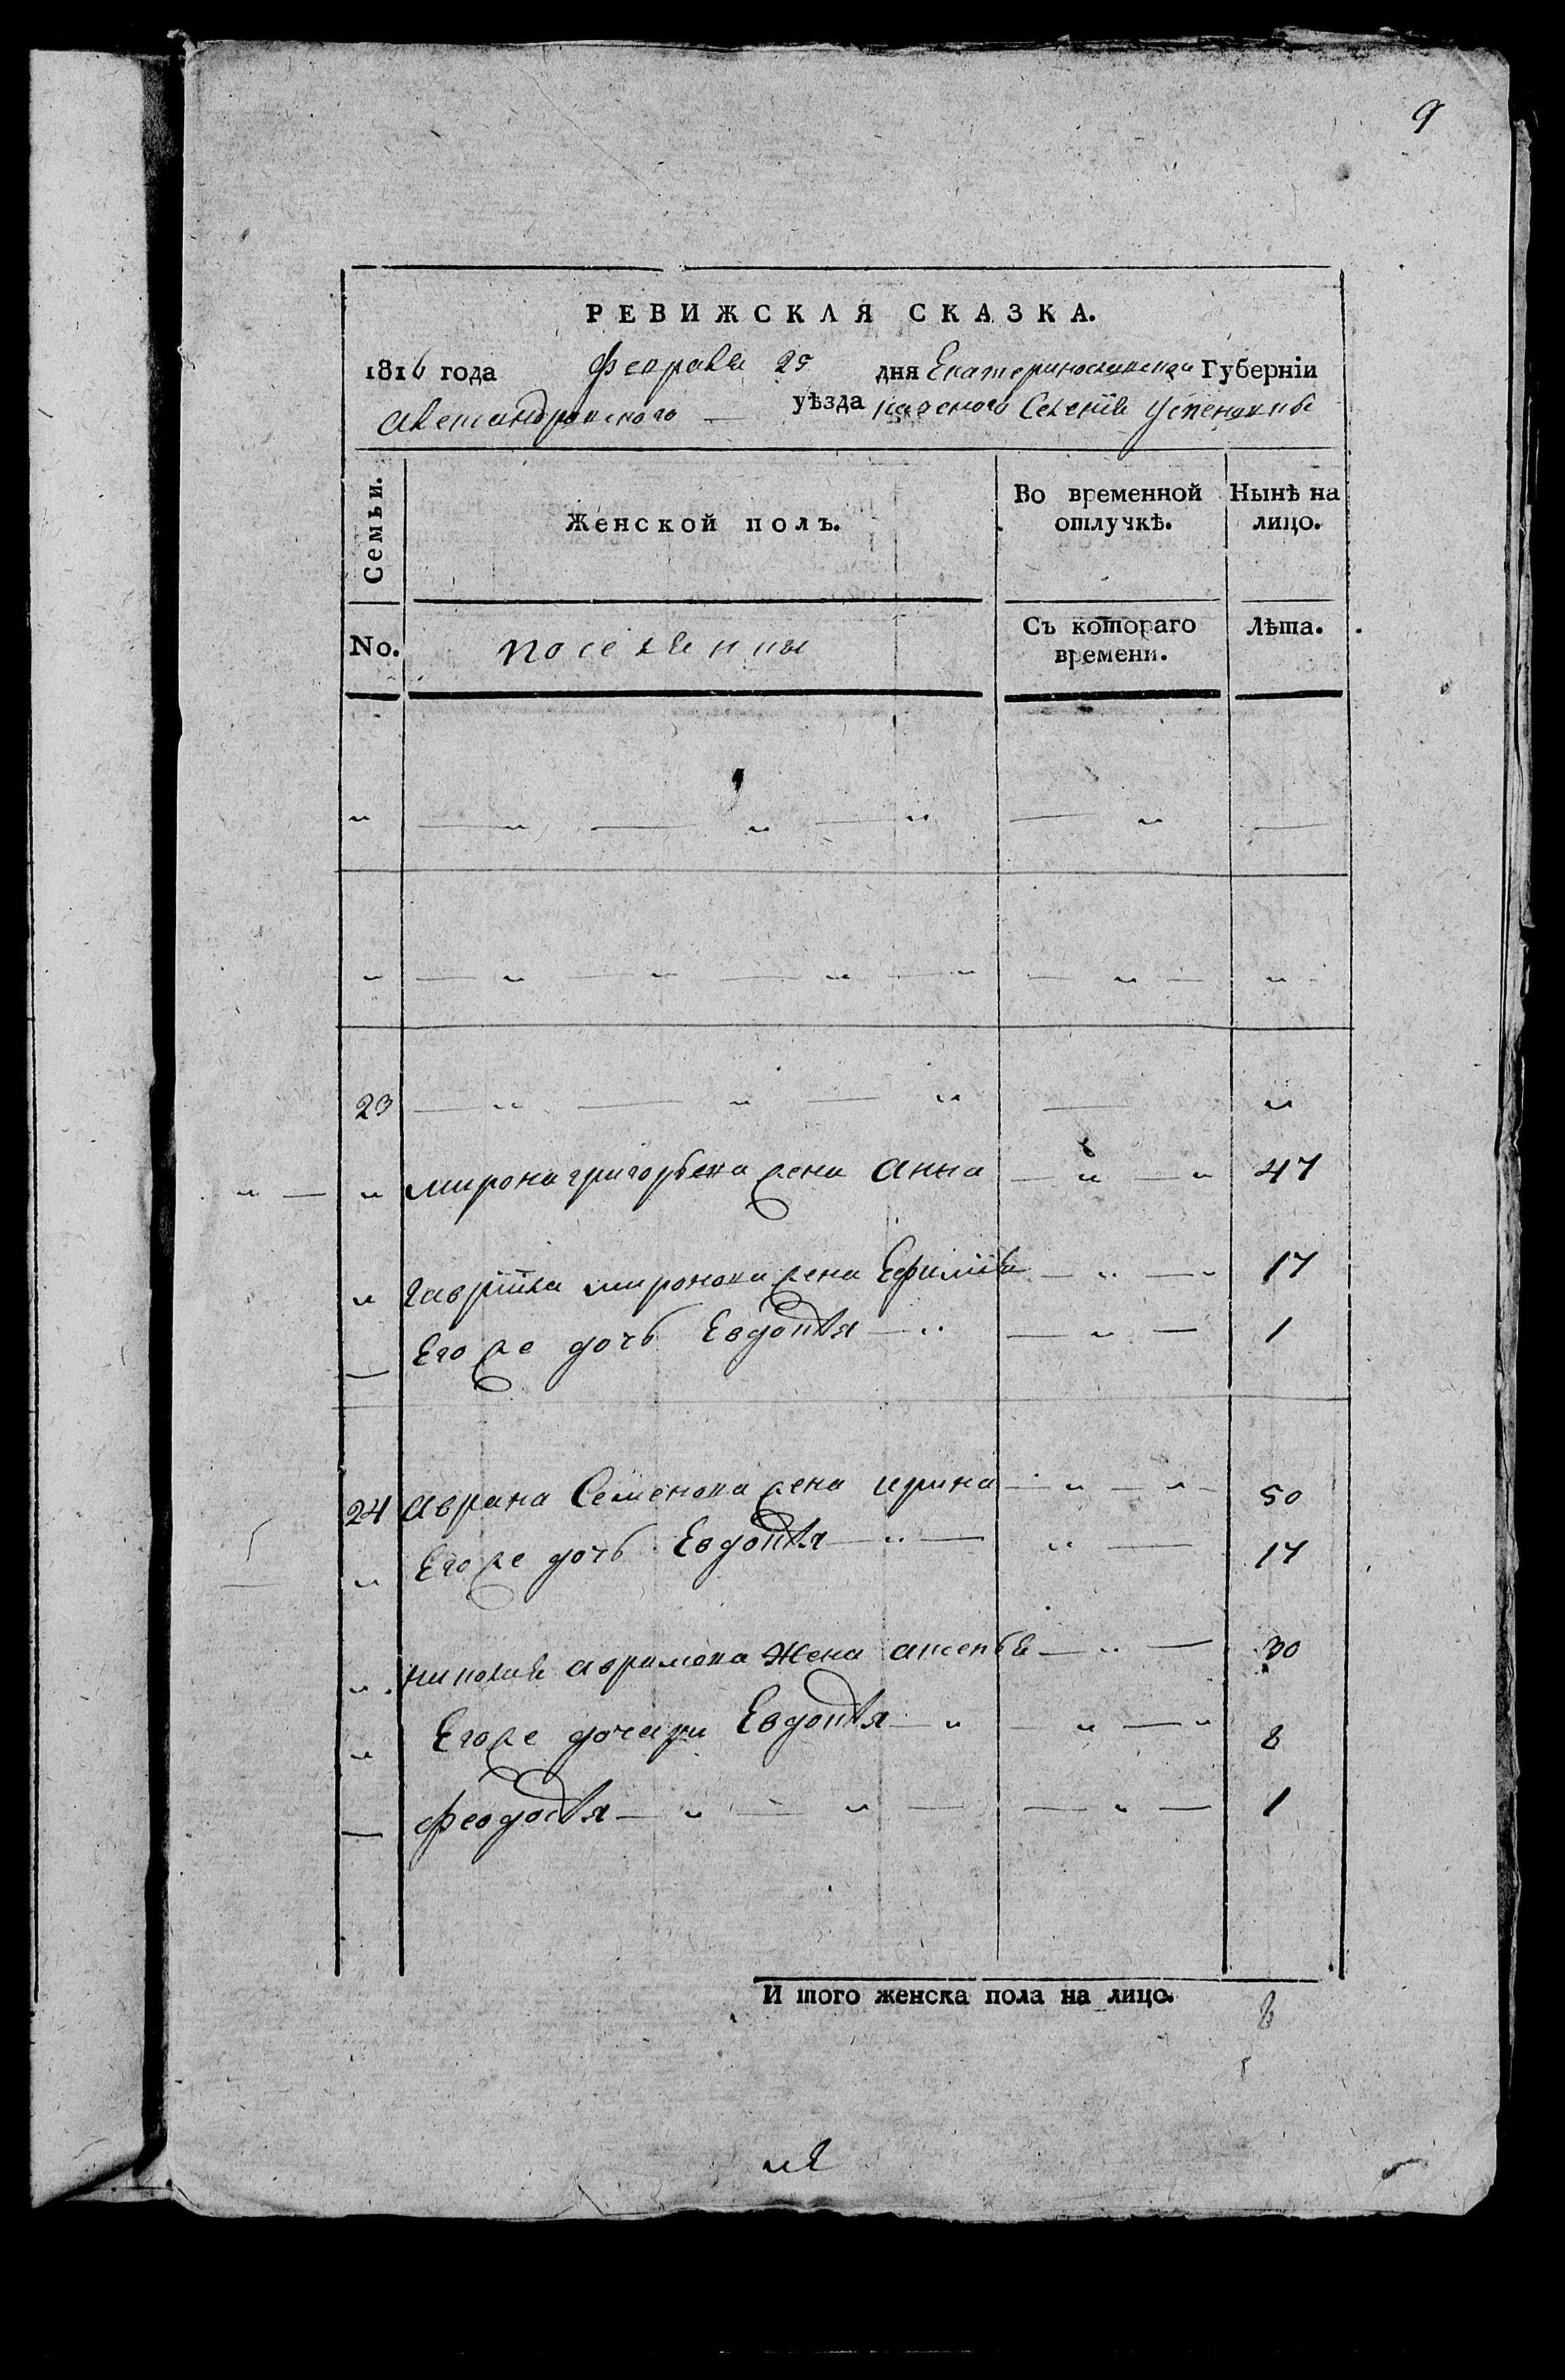 9
РЕВИЖСКАЯ СКАЗКА.
1816 года февраля 25 дня Екатеринославской Губерніи
александровского — уѣзда казеного Селенія Успеновки
Семьи.
Женской полъ.
Во временной отлучкѣ.
Нынѣ на лицо.
No.
поселянки
Съ котораго времени.
Лѣта.
" — " — " — " — " —
" — " — " — " — " — " — "
23 — " — " — " — "
" — " мирона григорьева жена анна — " — " 47
" гавріила миронова жена Ефимія — " — " 17
— Его же дочь Евдокія — " — " — 1
24 аврама Семенова жена ирина — " — " 50
" Его же дочь Евдокія — " — " — 17
" николая аврамова жена аксенья — " — 30
" Его же дочери Евдокія — " — " — " 8
— феодосія — " — " — — " — 1
И того женска пола на лицо. 8